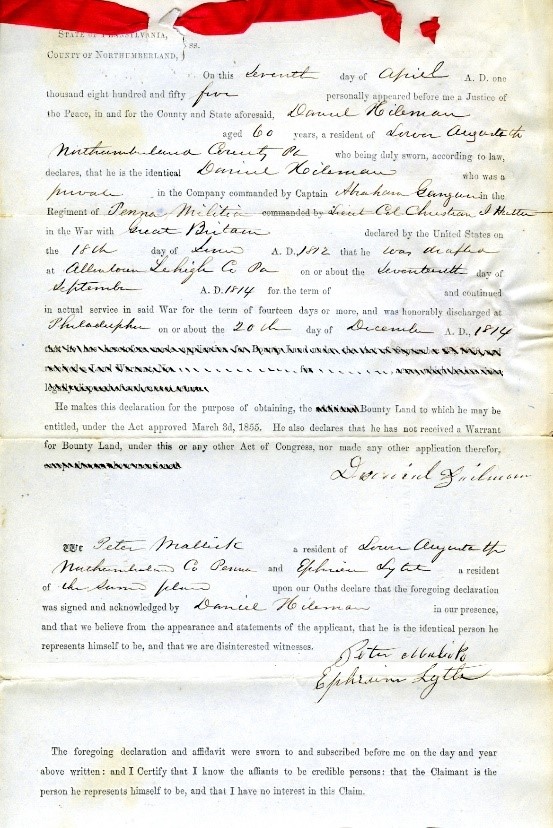 STATE OF PENNSYLVANIA, } ss.
COUNTY OF NORTHUMBERLAND,
On this Seventh day of April A. D. one
thousand eight hundred and fifty five personally appeared before me a Justice of
the Peace, in and for the County and State aforesaid, Daniel Hileman
aged 60 years, a resident of Lower Augusta tp
Northumberland County Pa who being duly sworn, according to law,
declares, that he is the identical Daniel Hileman who was a
private in the Company commanded by Captain Abraham in the
Regiment of Penna Militia commanded by Lieut Col Christian J Hutter
in the War with Great Britain declared by the United States on
the 18th day of June A. D. 1812 that he was drafted
at Allentown Lehigh Co Pa on or about the Seventeenth day of
September A. D. 1814 for the term of and continued
in actual service in said War for the term of fourteen days or more, and was honorably discharged at
Philadelphia on or about the 20th day of December A. D., 1814
He makes this declaration for the purpose of obtaining, the Bounty Land to which he may be
entitled, under the Act approved March 3d, 1855. He also declares that he has not received a Warrant
for Bounty Land, under this or any other Act of Congress, nor made any other application therefor,
Daniel Hileman
We Peter Mallick a resident of Lower Augusta tp
Northumberland Co Penna and Ephriem Lytle a resident
of the same place upon our Oaths declare that the foregoing declaration
was signed and acknowledged by Daniel Hileman in our presence,
and that we believe from the appearance and statements of the applicant, that he is the identical person he
represents himself to be, and that we are disinterested witnesses.
Peter Malick
Ephraim Lytle
The foregoing declaration and affidavit were sworn to and subscribed before me on the day and year
above written: and I Certify that I know the affiants to be credible persons: that the Claimant is the
person he represents himself to be, and that I have no interest in this Claim.